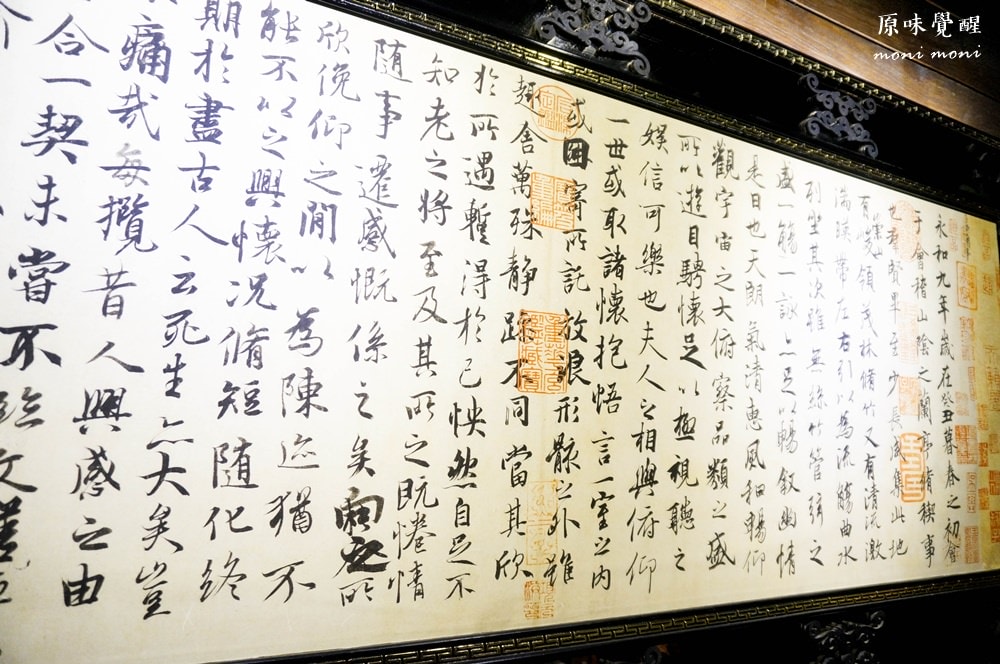 原味覺醒
moni moni
永和九年歲在癸丑暮春之初會
于會稽山陰之蘭亭脩稧事
也群賢畢至少長咸集此地
有崇山峻領茂林脩竹又有清流激
湍暎帶左右引以為流觴曲水
列坐其次雖無絲竹管弦之
盛一觴一詠亦足以暢敘幽情
是日也天朗氣清惠風和暢仰
觀宇宙之大俯察品類之盛
所以遊目騁懷足以極視聽之
娛信可樂也夫人之相與俯仰
一世或取諸懷抱悟言一室之內
或因寄所託放浪形骸之外雖
趣舍萬殊靜躁不同當其欣
於所遇蹔得於己怏然自足不
知老之將至及其所之既惓情
隨事遷感慨係之矣向之所
欣俛仰之閒以為陳迹猶不
能不以之興懷況脩短隨化終
期於盡古人云死生亦大矣豈
痛哉每攬昔人興感之由
合一契未嘗不臨文